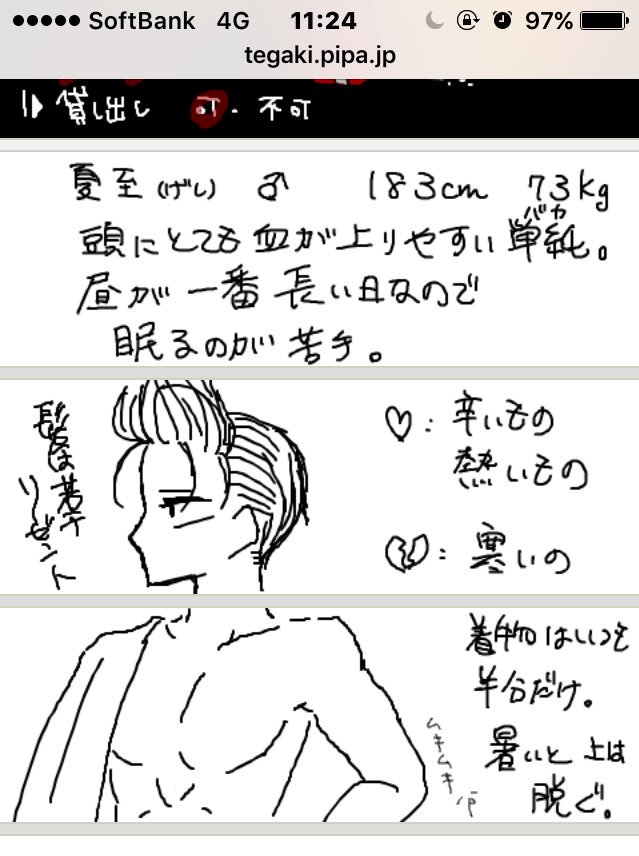 SoftBank 4G 11:24 97%
tegaki.pipa.jp
貸し出し 可・不可
夏至(げし) ♂ 183cm 73kg
頭にとても血が上りやすい単純。
バカ
昼が一番長い日なので
眠るのが苦手。
髪は若干
リーゼント
♡:辛いもの
熱いもの
💔:寒いの
着物はいつも
半分だけ。
暑いと上は
脱ぐ。
ムキムキ